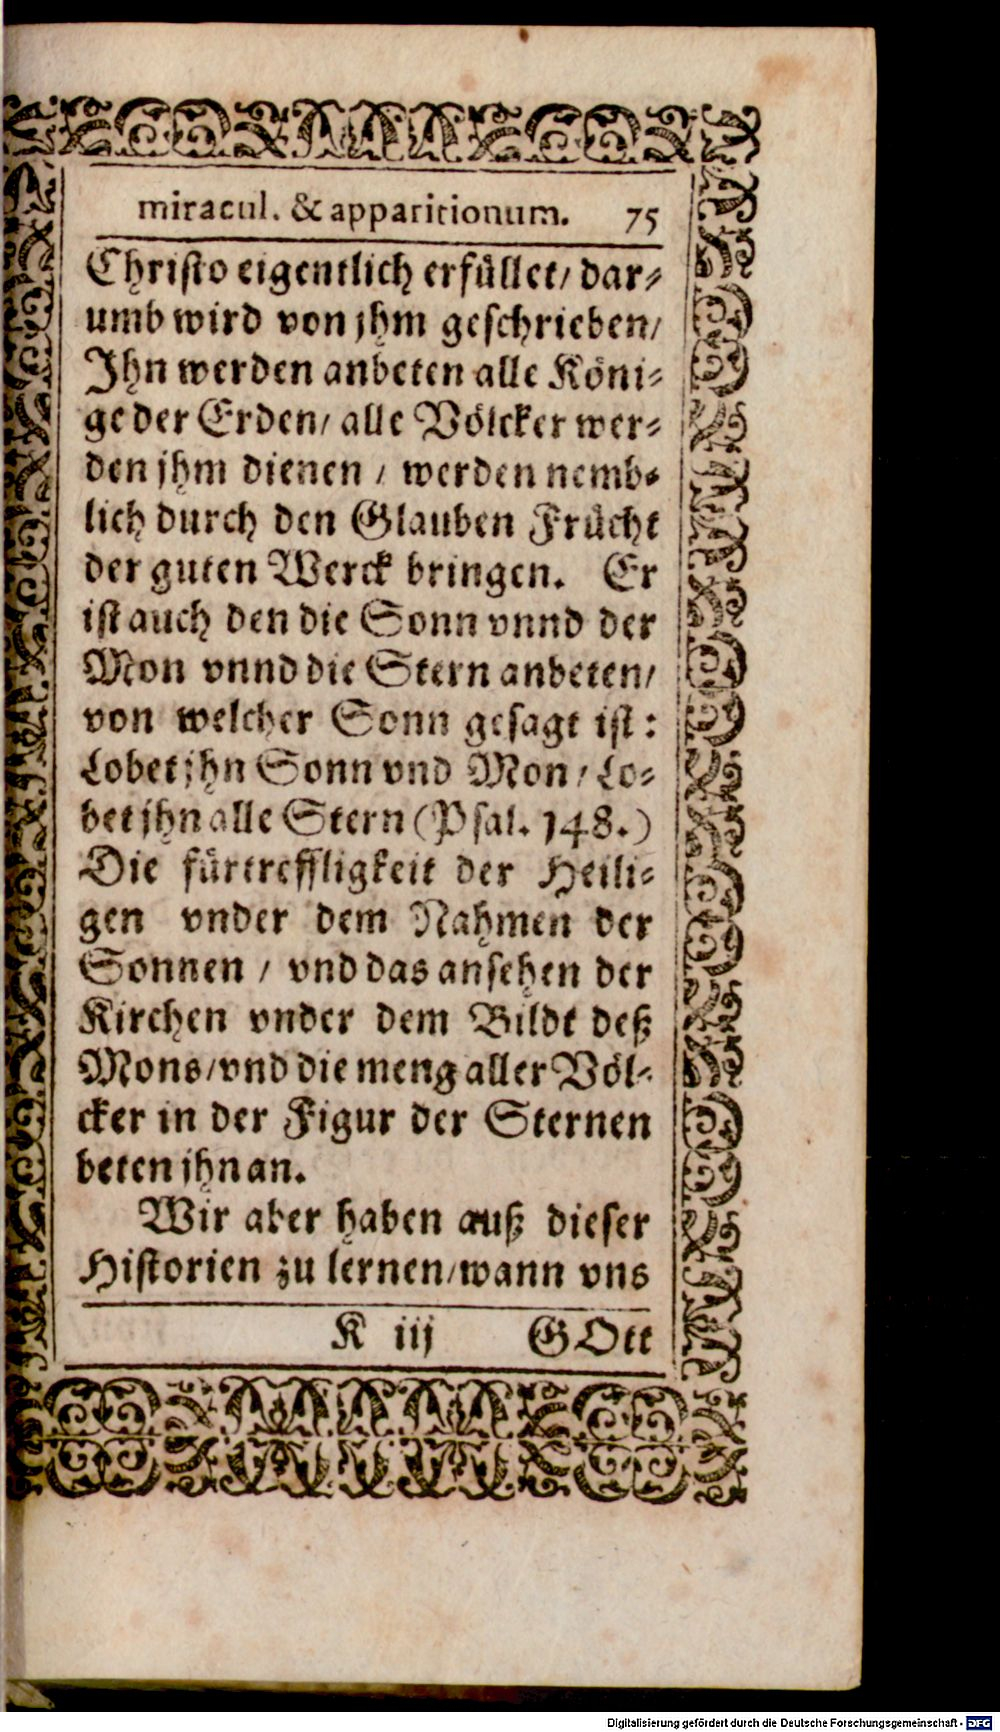 miracul. & apparitionum. 75
Christo eigentlich erfüllet/ dar-
umb wird von jhm geschrieben/
Jhn werden anbeten alle Köni-
ge der Erden/ alle Völcker wer-
den jhm dienen / werden nemb-
lich durch den Glauben Frücht
der guten Werck bringen. Er
ist auch den die Sonn vnnd der
Mon vnnd die Stern anbeten/
von welcher Sonn gesagt ist:
Lobet jhn Sonn vnd Mon / Lo-
bet jhn alle Stern (Psal. 148.)
Die fürtreffligkeit der Heili-
gen vnder dem Nahmen der
Sonnen / vnd das ansehen der
Kirchen vnder dem Bildt deß
Mons/ vnd die meng aller Völ-
cker in der Figur der Sternen
beten jhn an.
Wir aber haben auß dieser
Historien zu lernen/ wann vns
K iij GOtt
Digitalisierung gefördert durch die Deutsche Forschungsgemeinschaft - DFG